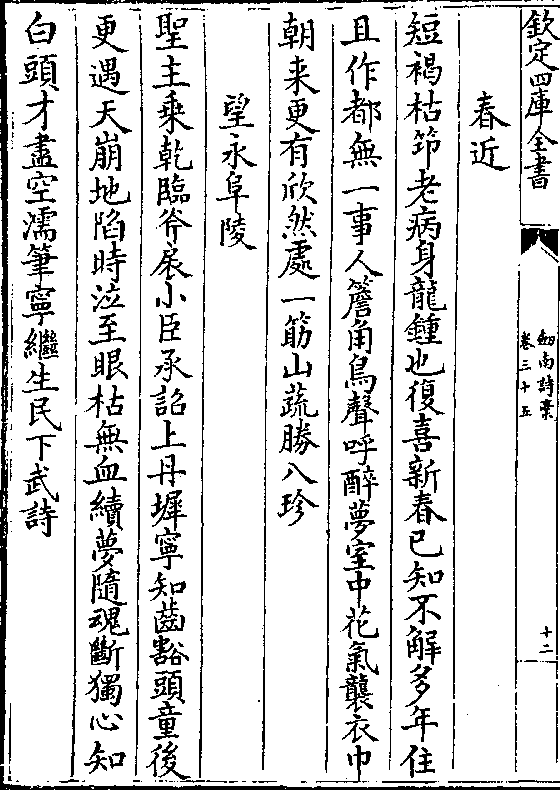 欽定四庫全書
劎南詩藁
卷三十五
十二
春近
短褐枯笻老病身龍鍾也復喜新春已知不解多年住
且作都無一事人簷角鳥聲呼醉夢室中花氣襲衣巾
朝来更有欣然處一筯山蔬勝八珍
望永阜陵
聖主乘乾臨斧扆小臣承詔上丹墀寧知齒豁頭童後
更遇天崩地陷時泣至眼枯無血續夢隨魂斷獨心知
白頭才盡空濡筆寧繼生民下武詩